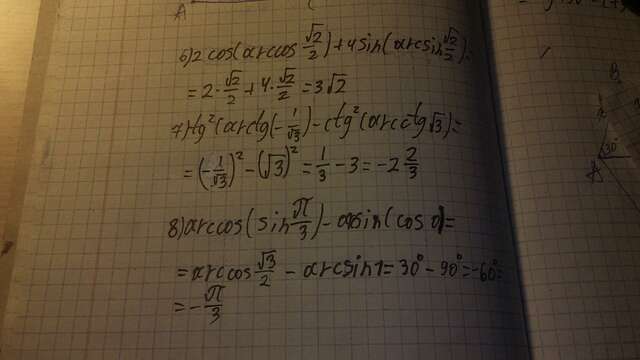 A
6) 2 cos(arccos √2/2) + 4 sin(arcsin √2/2) =
= 2 · √2/2 + 4 · √2/2 = 3√2
7) tg²(arctg(-1/√3) - ctg²(arcctg √3) =
= (-1/√3)² - (√3)² = 1/3 - 3 = -2 2/3
8) arccos(sin π/3) - arcsin(cos 0) =
= arccos √3/2 - arcsin 1 = 30° - 90° = -60° =
= - π/3
B
30°